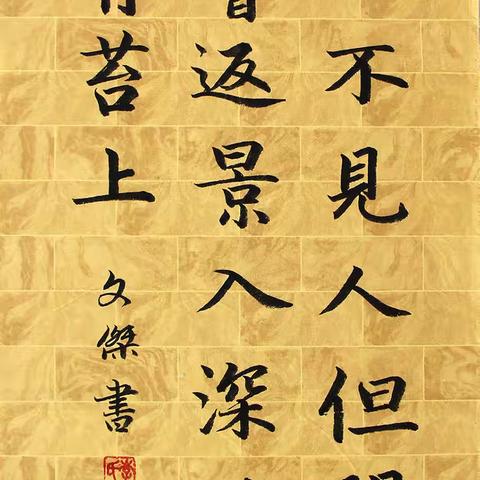 不見人但
返景入深
苔上
文傑書